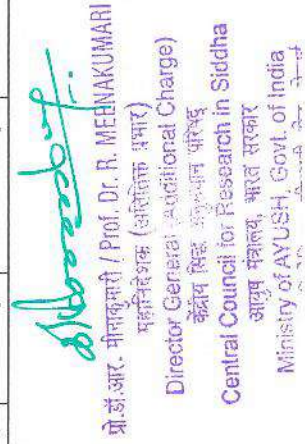 प्रो.डॉ.आर. मीनाकुमारी / Prof. Dr. R. MEENAKUMARI
महानिदेशक (अतिरिक्त प्रभार)
Director General (Additional Charge)
केंद्रीय सिद्ध अनुसंधान परिषद्
Central Council for Research in Siddha
आयुष मंत्रालय, भारत सरकार
Ministry of AYUSH, Govt. of India